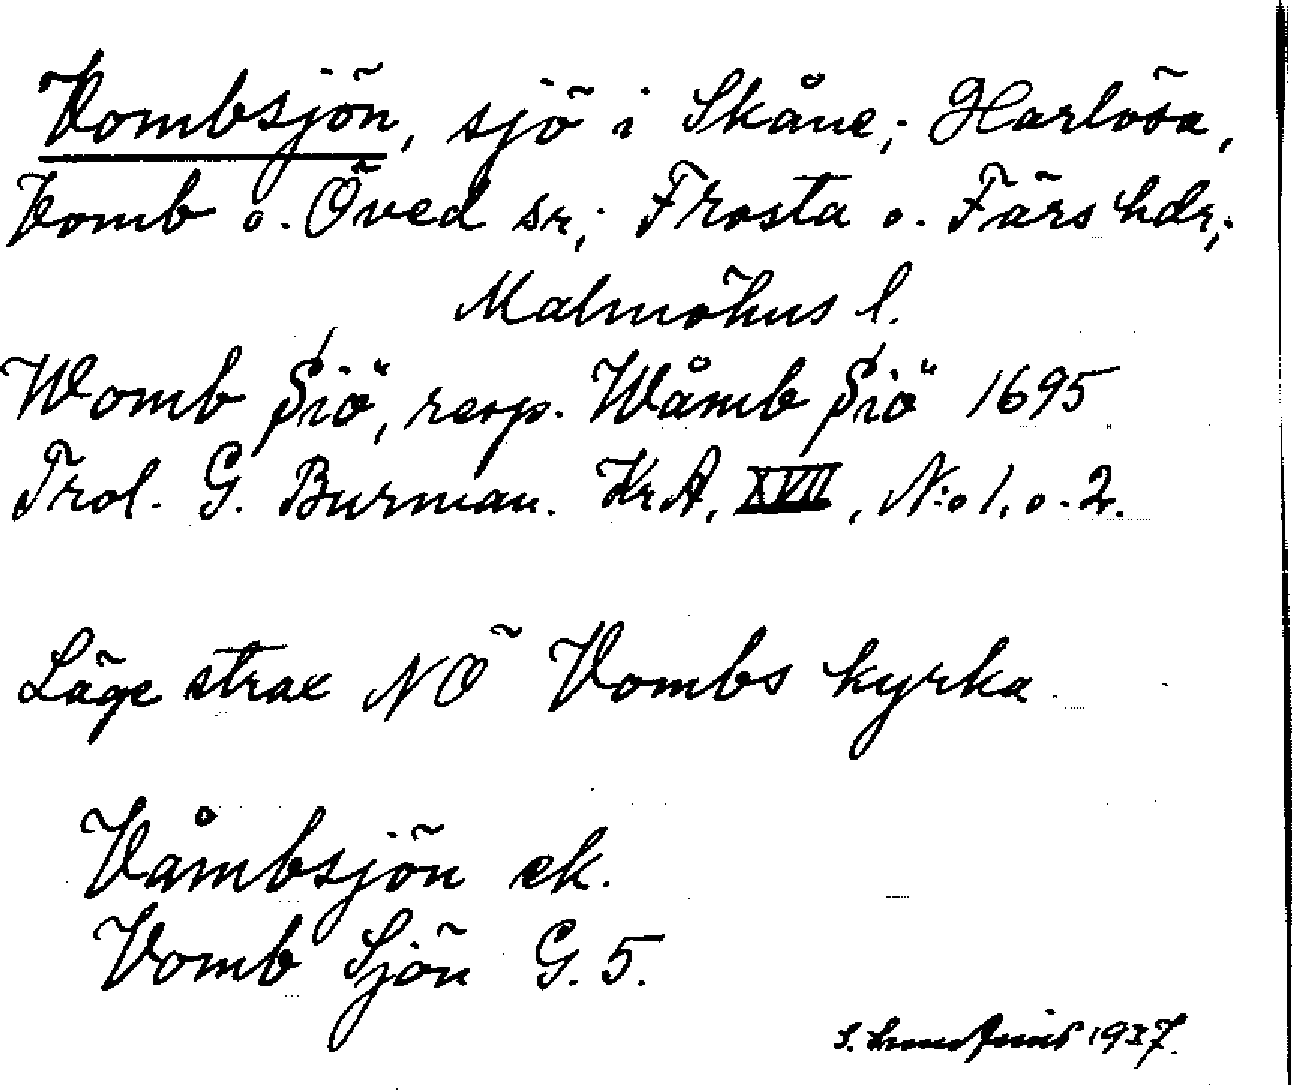 Vombsjön, sjö i Skåne; Harlösa,
Vomb o. Öved sr; Frosta o. Färs hdr;
Malmöhus l.
Womb Siö, resp. Wåmb Siö 1695
Trol. G. Burman. Kr A, XVII, N:o 1. o. 2.
Läge strax NÖ Vombs kyrka
Våmbsjön ek.
Vomb Sjön G. 5.
S. 1937.